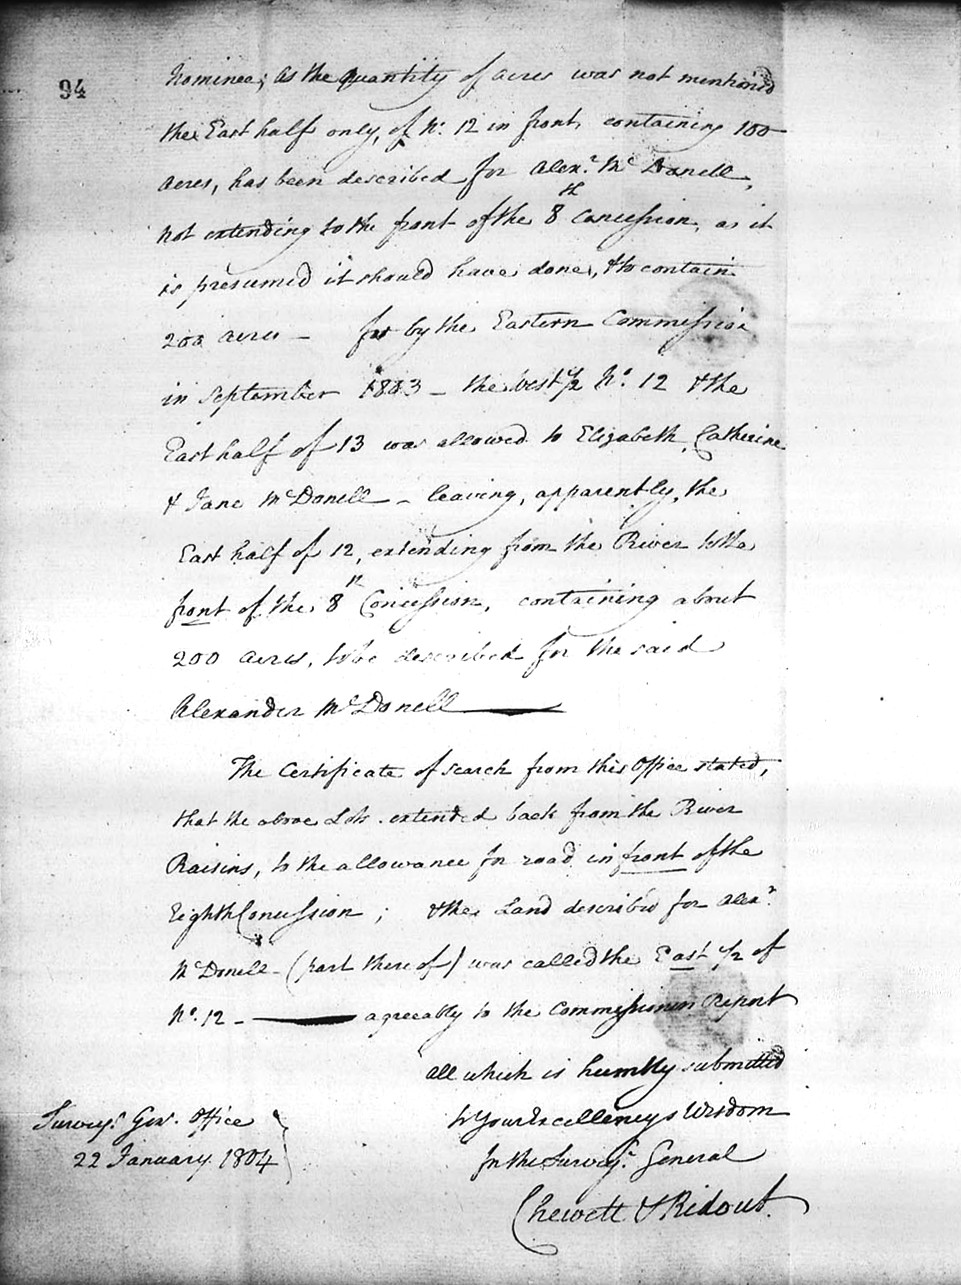 94
Nominee; As the quantity of acres was not mentioned
the East half only, of No. 12 in front, containing 100
Acres, has been described for Alexr. McDonell,
not extending to the front of the 8th Concession, as it
is presumed it should have done, & to contain
200 acres – for by the Eastern Commission
in September 1803 – the west 1/2 No. 12 & the
East half of 13 was allowed to Elizabeth, Catherine
& Jane McDonell – leaving, apparently, the
East half of 12, extending from the River to the
front of the 8th Concession, containing about
200 acres, to be described for the said
Alexander McDonell ——
The Certificate of search from this Office stated,
that the above Lots extended back from the River
Raisins, to the allowance for road in front of the
Eighth Concession; & the Land described for Alexr.
McDonell – (part thereof) was called the East 1/2 of
No. 12 – —— agreeably to the Commissioners Report
all which is humbly submitted
to Your Excellency's Wisdom
Surveyr. Genl. Office
22 January 1804
for the Surveyr. General
Chewett & Ridout.